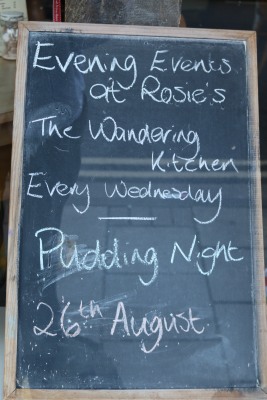 Evening Events
at Rosie's
The Wandering
Kitchen
Every Wednesday
Pudding Night
26th August